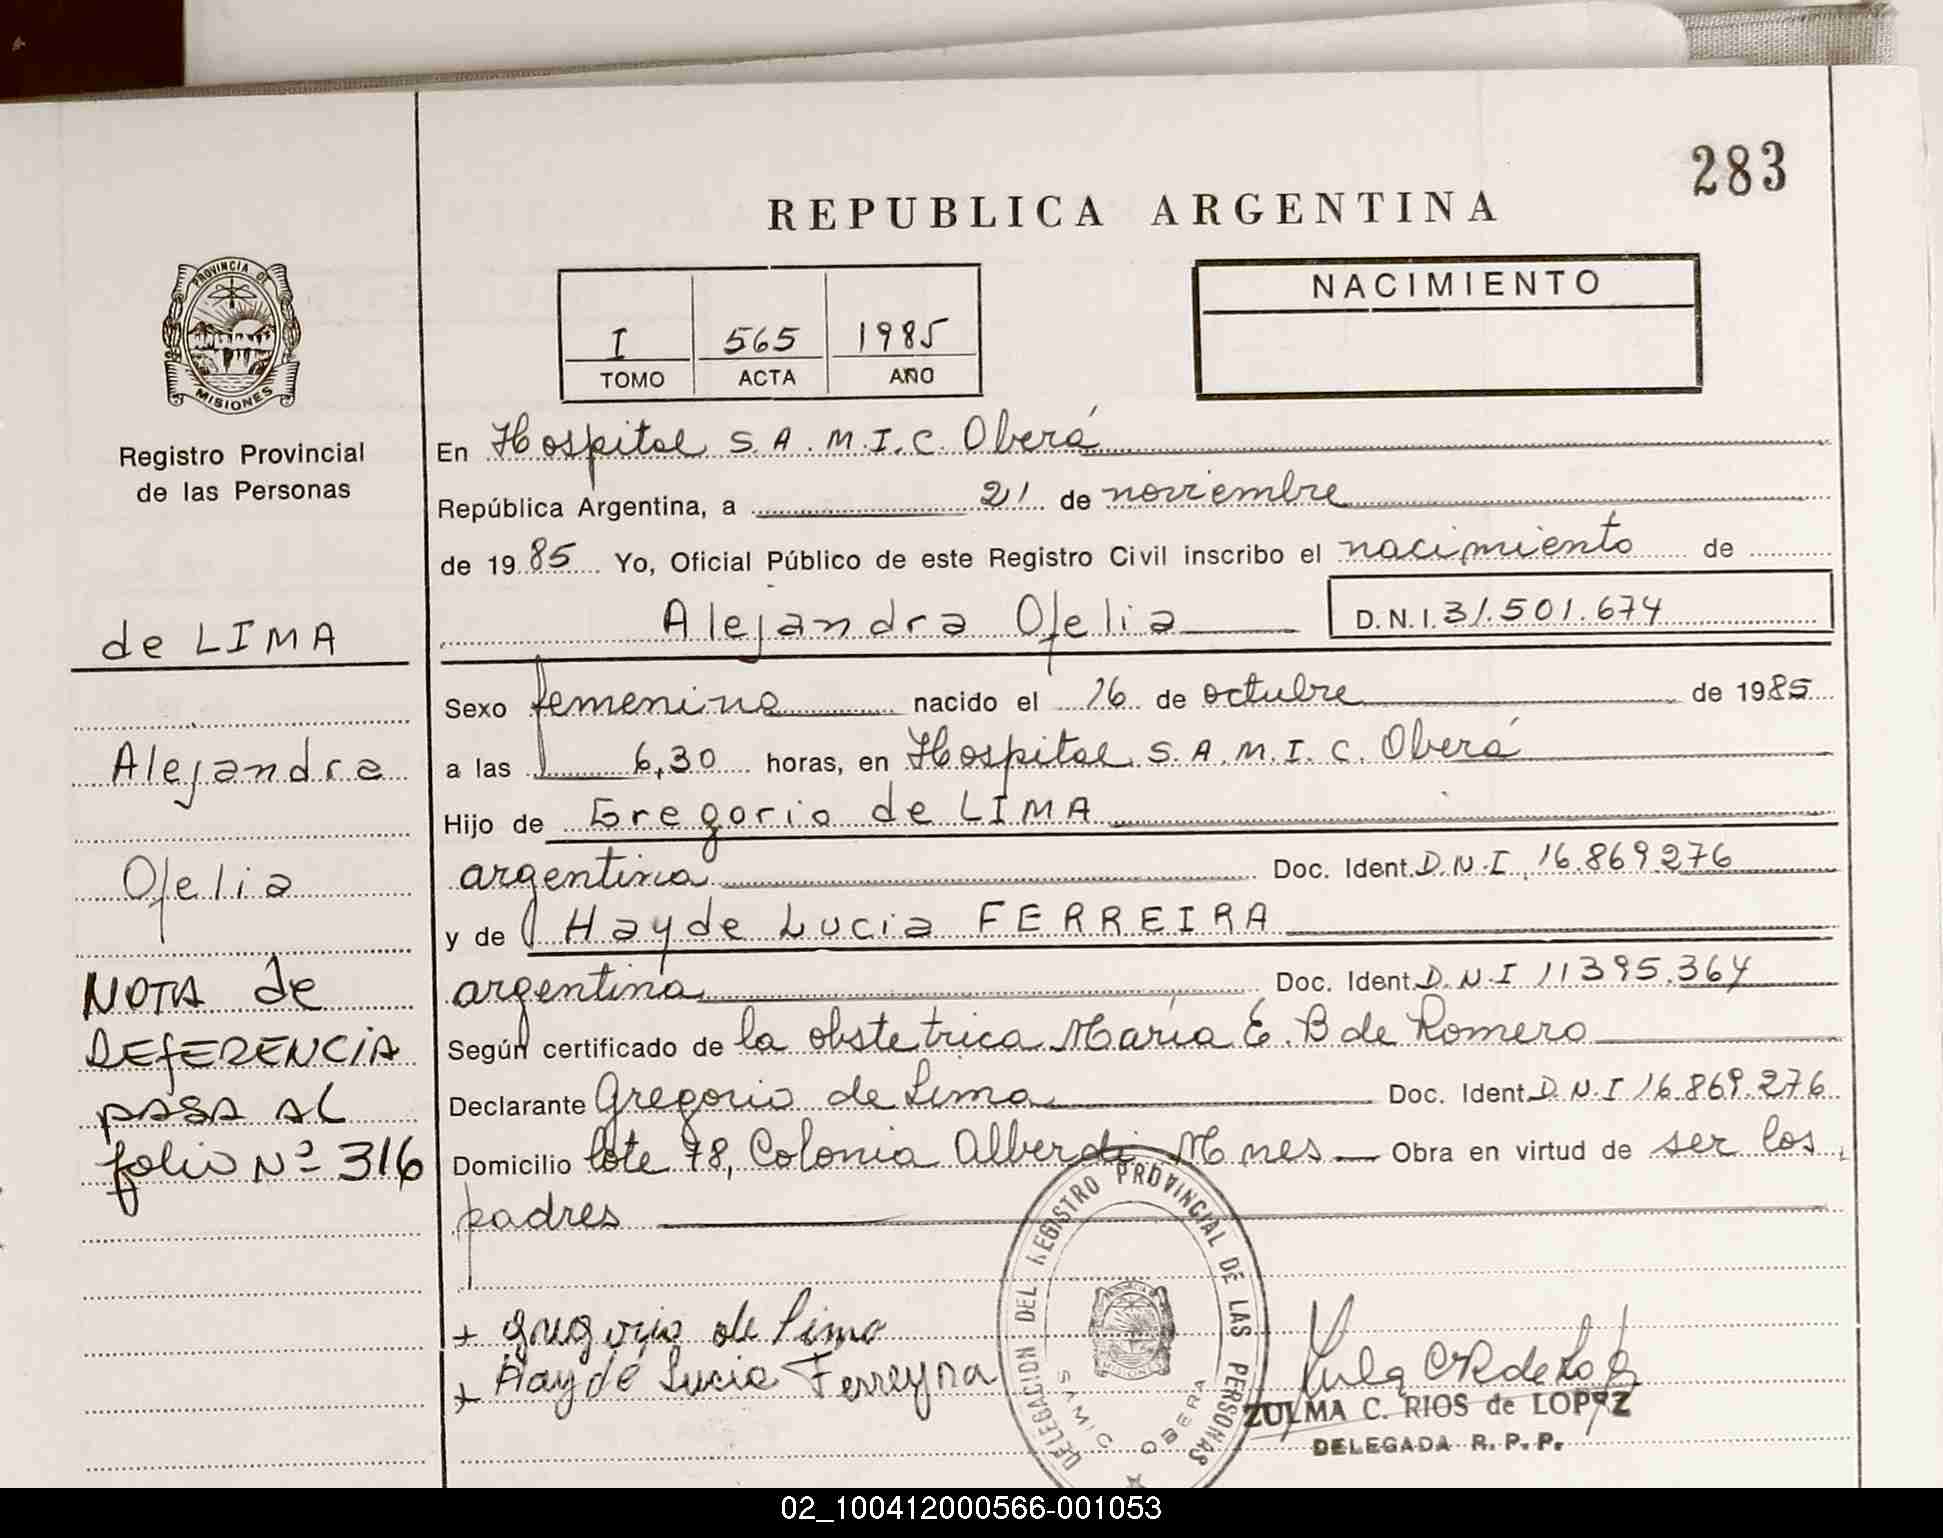 283
REPUBLICA ARGENTINA
PROVINCIA DE
MISIONES
Registro Provincial
de las Personas
I 565 1985
TOMO ACTA AÑO
NACIMIENTO
En Hospital S.A.M.I.C. Oberá
República Argentina, a 21 de noviembre
de 1985 Yo, Oficial Público de este Registro Civil inscribo el nacimiento de
Alejandra Ofelia D.N.I. 31.501.674
de LIMA
Alejandra
Ofelia
NOTA de
REFERENCIA
PASA AL
folio Nº 316
Sexo femenino nacido el 16 de octubre de 1985
a las 6,30 horas, en Hospital S.A.M.I.C. Oberá
Hijo de Gregorio de LIMA
argentina Doc. Ident. D.N.I. 16.869.276
y de Hayde Lucia FERREIRA
argentina Doc. Ident. D.N.I 11395.364
Según certificado de la obstetrica María E. B de Romero
Declarante Gregorio de Lima Doc. Ident. D.N.I 16.869.276
Domicilio lote 78, Colonia Alberdi Mnes Obra en virtud de ser los
padres
Gregorio de Lima
Haydé Lucia Ferreyra
DELEGACION DEL REGISTRO PROVINCIAL DE LAS PERSONAS
SAMIC OBERA
ZULMA C. RIOS de LOPEZ
DELEGADA R. P. P.
02_100412000566-001053